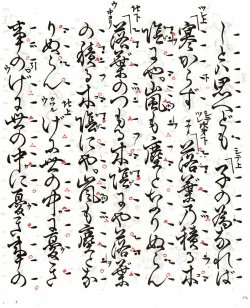 しとハ思へども 子の為なれば
寒からず 落葉乃積る木
陰にや嵐も塵となりぬらん
落葉のつもる木陰にや 落葉
の積る木陰にや。嵐も塵とな
りぬらん げに世の中に憂き
事のげに世の中に憂き事の